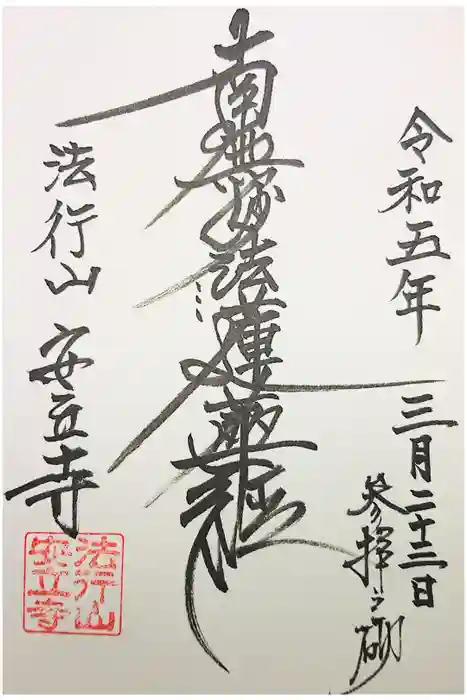 令和五年
三月二十三日
参拝之砌
南無妙法蓮華経
法行山 安立寺
法行山
安立寺